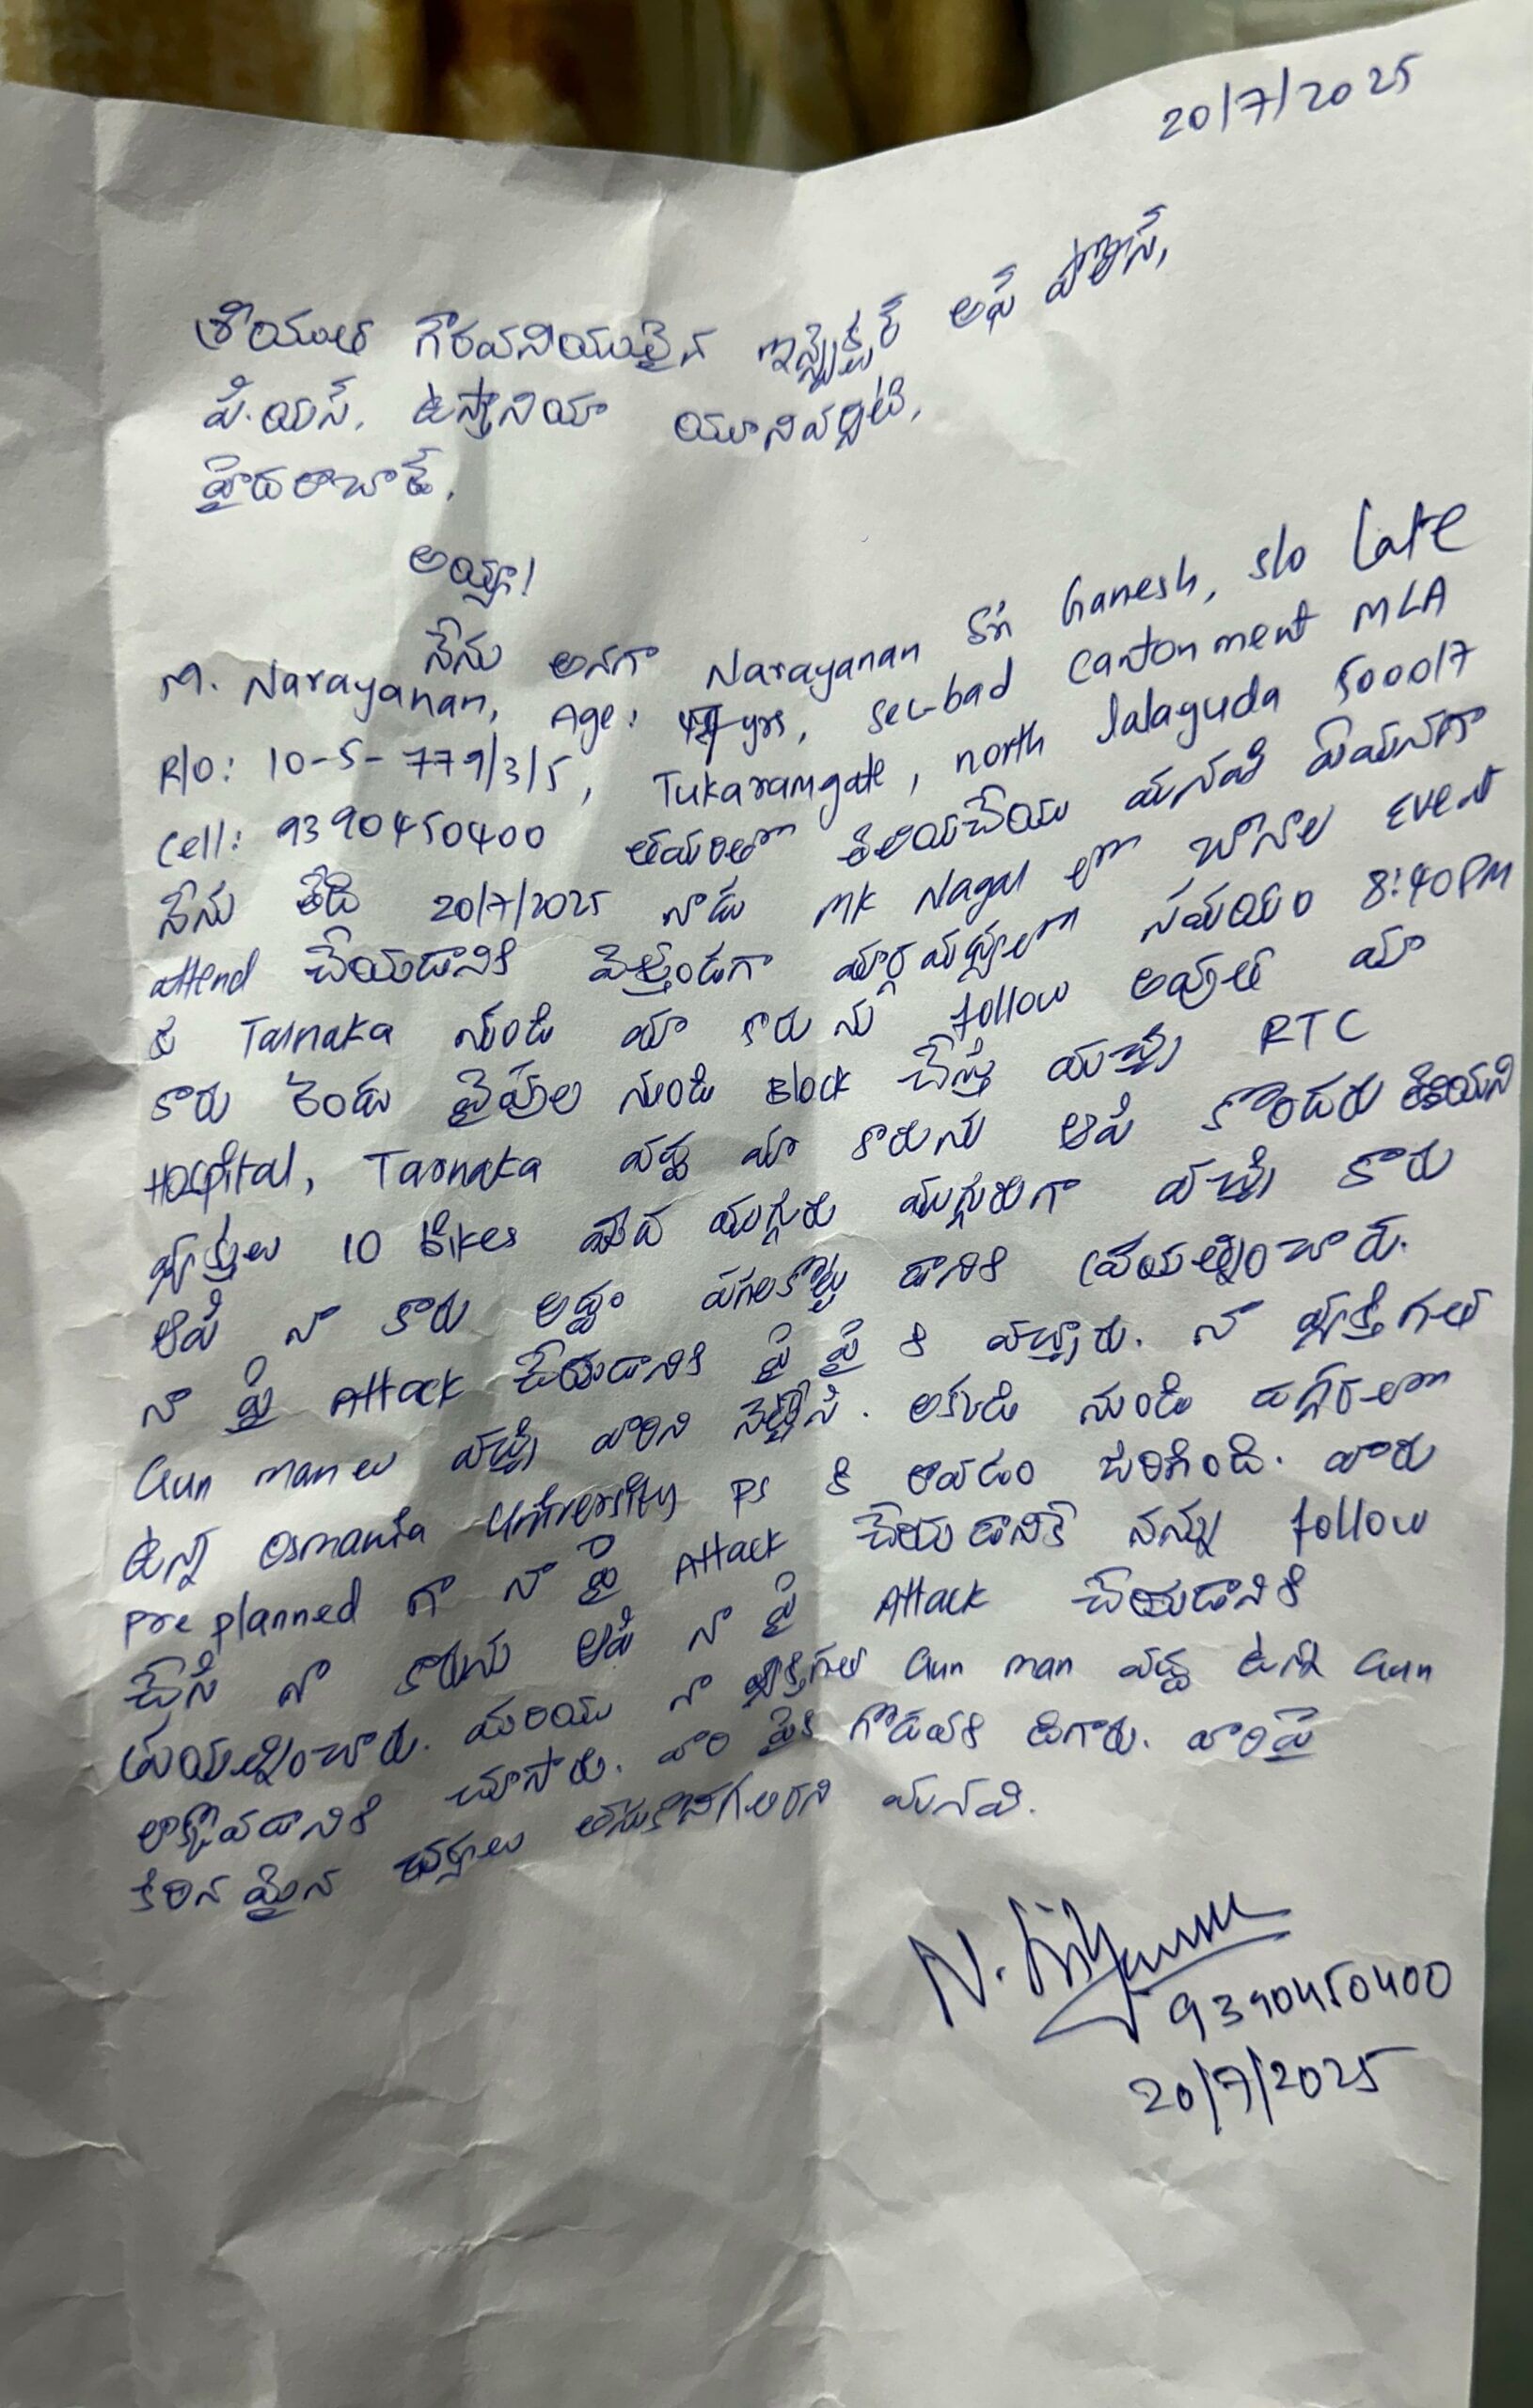 20/7/2025
శ్రీయుత గౌరవనియులైన ఇన్స్పెక్టర్ ఆఫ్ పోలీస్,
పి.యస్. ఉస్మానియా యూనివర్సిటి,
హైదరాబాద్.
అయ్యా!
నేను అనగా Narayanan Sri Ganesh, S/o Late
M. Narayanan, Age: yrs, Sec-bad Cantonment MLA
R/O: 10-5-779/3/5, Tukaramgate, north lalaguda 500017
Cell: 9390450400 తమరితో తెలియచేయు మనవి ఏమనగా
నేను తేది 20/7/2025 నాడు MK Nagar లో బోనాల Event
attend చేయడానికి వెళ్తుండగా మార్గమధ్యలో సమయం 8:40PM
కు Tarnaka నుండి మా కారు ను follow అవుతూ మా
కారు రెండు వైపుల నుండి Block చేస్తూ మధ్య RTC
Hospital, Tarnaka వద్ద మా కారును ఆపి కొందరు తెలియని
వ్యక్తులు 10 bikes మీద ముగ్గురు ముగ్గురుగా వచ్చి కారు
ఆపి నా కారు అద్దం పగలకొట్ట డానికి ప్రయత్నించారు.
నా పై Attack చేయడానికి పై పై కి వచ్చారు. నా వ్యక్తిగత
Gun manలు వచ్చి వారిని నెట్టేసి. అక్కడి నుండి దగ్గరలో
ఉన్న Osmania University PS కి రావడం జరిగింది. వారు
pre planned గా నా పై Attack చేయడానికి నన్ను follow
చేసి నా కారును ఆపి నా పై Attack చేయడానికి
ప్రయత్నించారు. మరియు నా వ్యక్తిగత Gun man వద్ద ఉన్న Gun
లాక్కోవడానికి చూసారు. వారి పైకి గొడవకి దిగారు. వారిపై
కఠినమైన చర్యలు తీసుకోవగలరని మనవి.
9390450400
20/7/2025